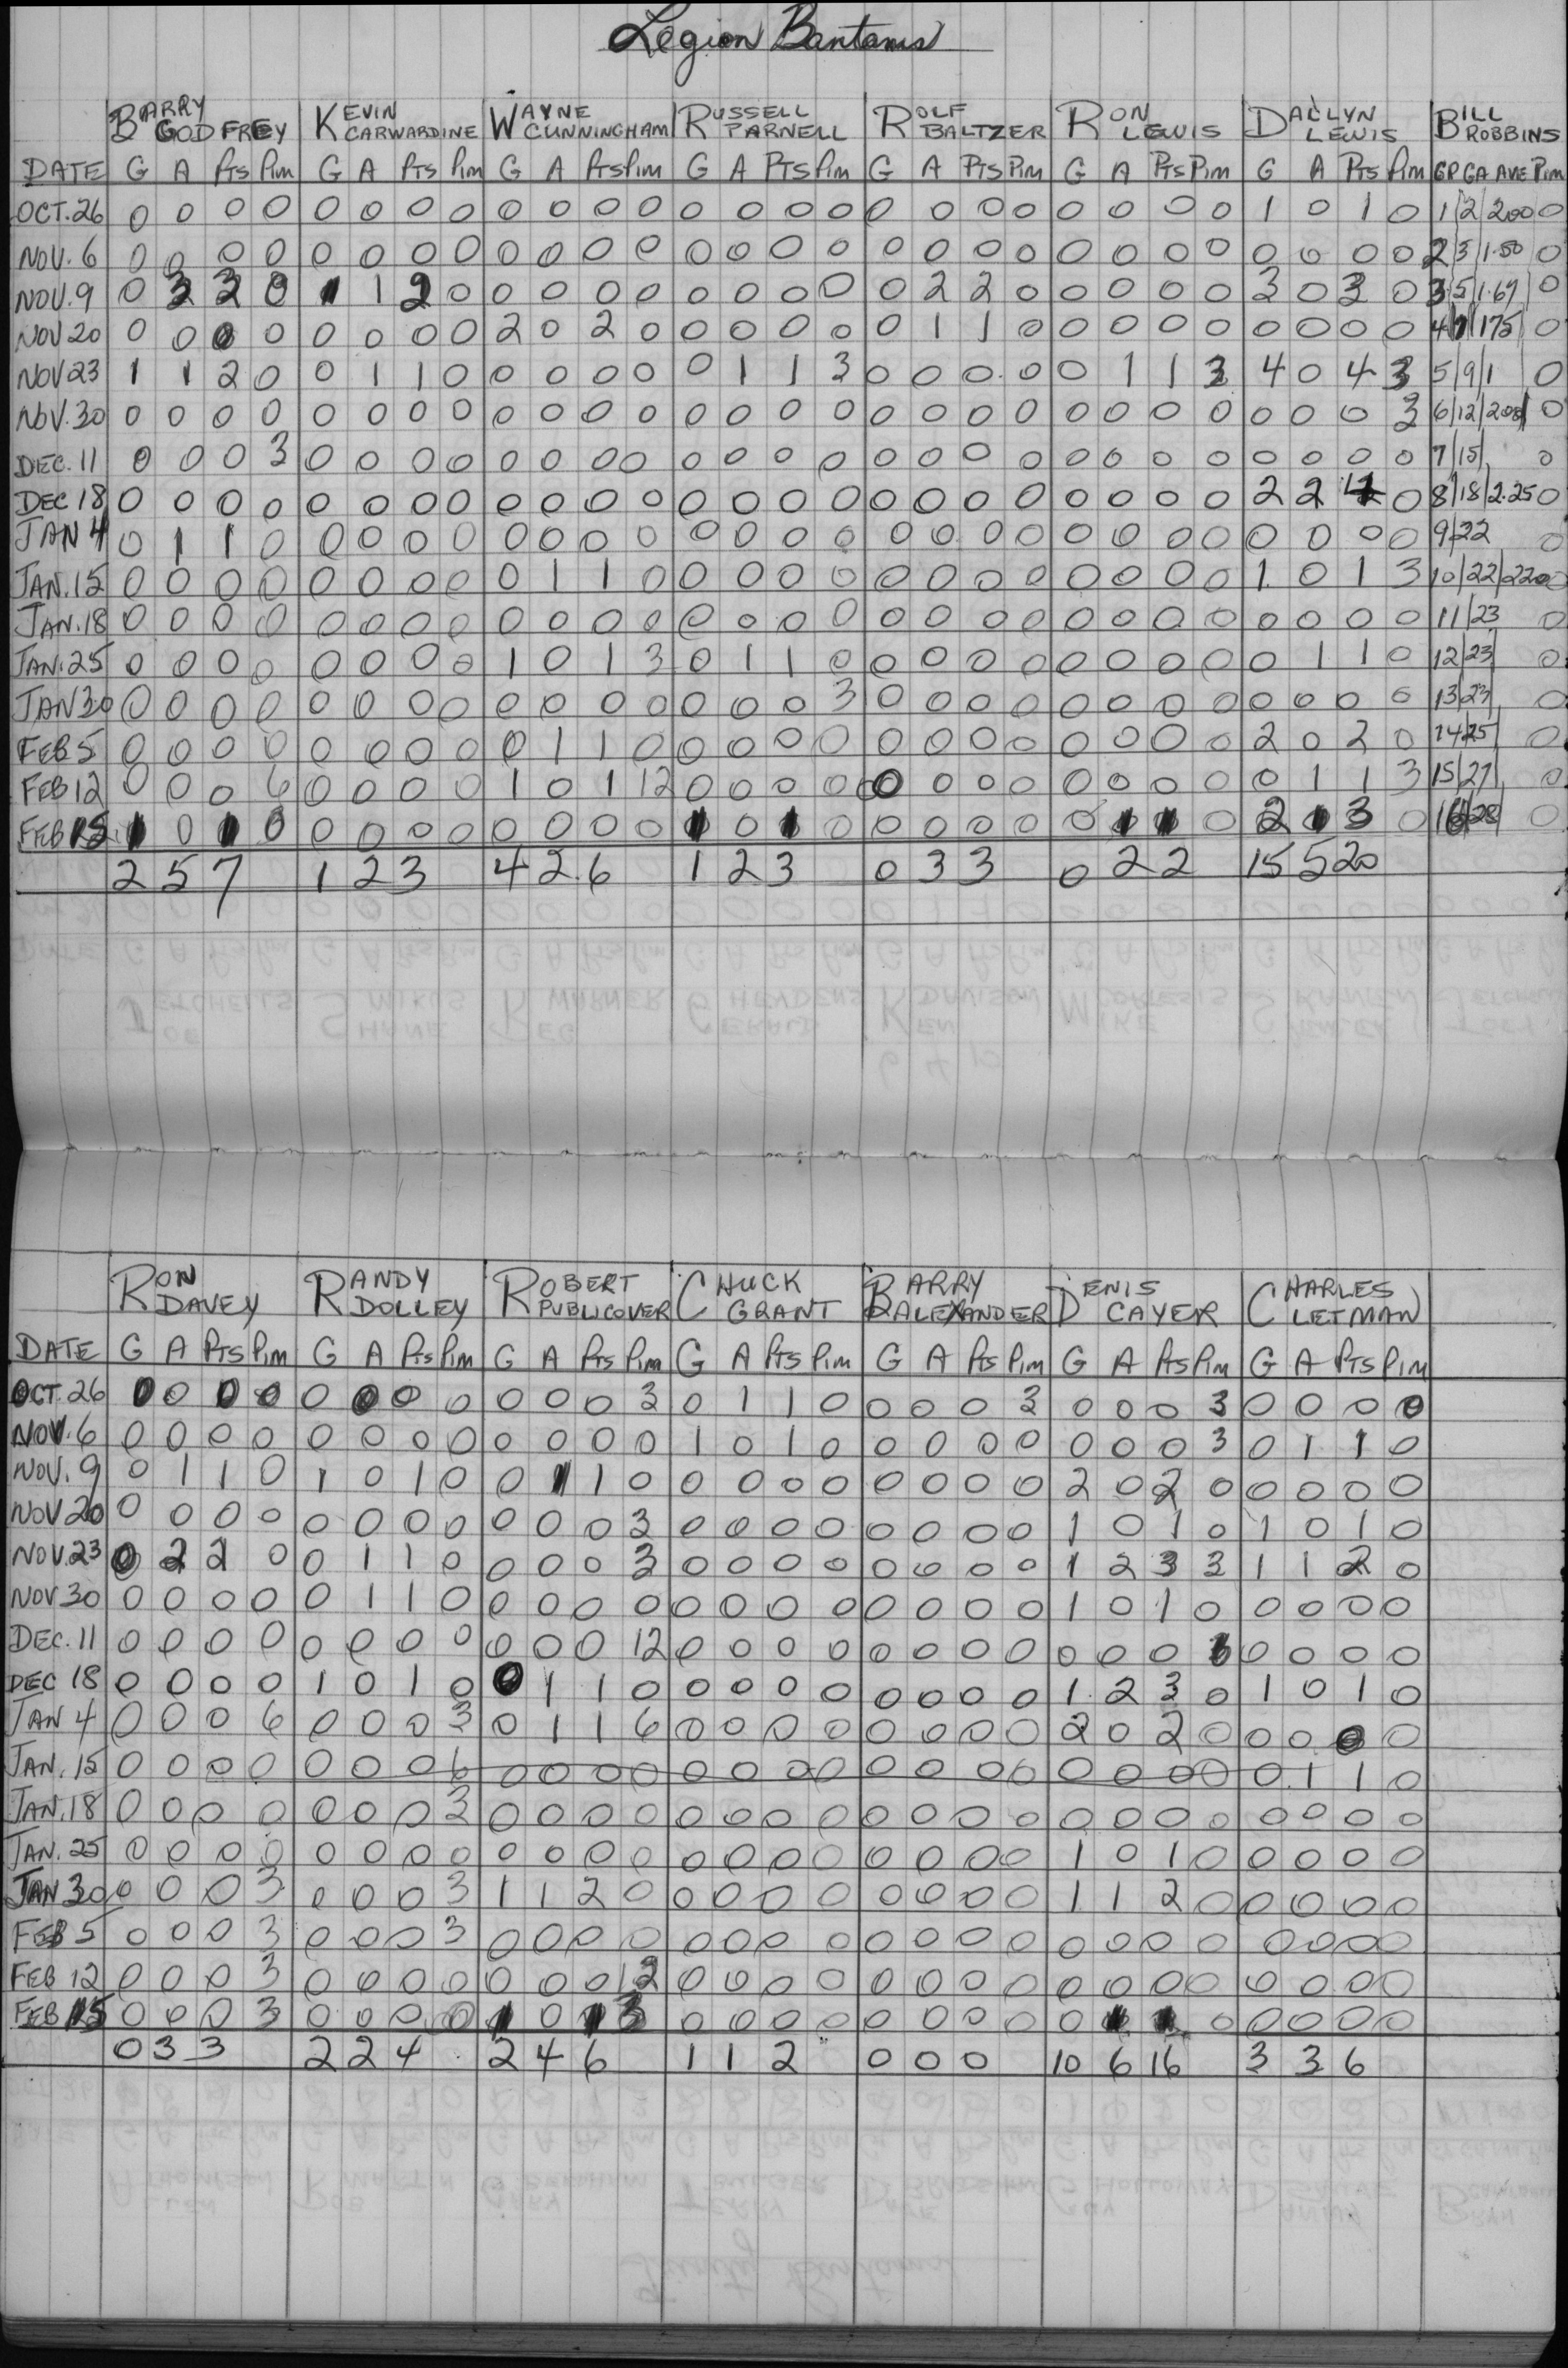 Legion Bantams
BARRY GODFREY KEVIN CARWARDINE WAYNE CUNNINGHAM RUSSELL PARNELL ROLF BALTZER RON LEWIS DALLYN LEWIS BILL ROBBINS
DATE G A Pts Pim G A Pts Pim G A Pts Pim G A Pts Pim G A Pts Pim G A Pts Pim G A Pts Pim GP GA AVE Pim
OCT. 26 0 0 0 0 0 0 0 0 0 0 0 0 0 0 0 0 0 0 0 0 0 0 0 0 1 0 1 0 1/2/200 0
NOV. 6 0 0 0 0 0 0 0 0 0 0 0 0 0 0 0 0 0 0 0 0 0 0 0 0 0 0 0 0 2/3/1.50 0
NOV. 9 0 3 3 0 1 1 2 0 0 0 0 0 0 0 0 0 0 2 2 0 0 0 0 0 3 0 3 0 3/5/1.67 0
NOV 20 0 0 0 0 0 0 0 0 2 0 2 0 0 0 0 0 0 1 1 0 0 0 0 0 0 0 0 0 4/7/175 0
NOV 23 1 1 2 0 0 1 1 0 0 0 0 0 0 1 1 3 0 0 0 0 0 1 1 3 4 0 4 3 5/9/1 0
NOV. 30 0 0 0 0 0 0 0 0 0 0 0 0 0 0 0 0 0 0 0 0 0 0 0 0 0 0 0 3 6/12/2.00 0
DEC. 11 0 0 0 3 0 0 0 0 0 0 0 0 0 0 0 0 0 0 0 0 0 0 0 0 0 0 0 0 7/15/ 0
DEC 18 0 0 0 0 0 0 0 0 0 0 0 0 0 0 0 0 0 0 0 0 0 0 0 0 2 2 4 0 8/18/2.25 0
JAN 4 0 1 1 0 0 0 0 0 0 0 0 0 0 0 0 0 0 0 0 0 0 0 0 0 0 0 0 0 9/22 0
JAN. 15 0 0 0 0 0 0 0 0 0 1 1 0 0 0 0 0 0 0 0 0 0 0 0 0 1 0 1 3 10/22/220 0
JAN. 18 0 0 0 0 0 0 0 0 0 0 0 0 0 0 0 0 0 0 0 0 0 0 0 0 0 0 0 0 11/23 0
JAN. 25 0 0 0 0 0 0 0 0 1 0 1 3 0 1 1 0 0 0 0 0 0 0 0 0 0 1 1 0 12/23/ 0
JAN 30 0 0 0 0 0 0 0 0 0 0 0 0 0 0 0 3 0 0 0 0 0 0 0 0 0 0 0 0 13/23/ 0
FEB 5 0 0 0 0 0 0 0 0 0 1 1 0 0 0 0 0 0 0 0 0 0 0 0 0 2 0 2 0 14/25/ 0
FEB 12 0 0 0 6 0 0 0 0 1 0 1 12 0 0 0 0 0 0 0 0 0 0 0 0 0 1 1 3 15/27/ 0
FEB 15 1 0 1 0 0 0 0 0 0 0 0 0 1 0 1 0 0 0 0 0 0 1 1 0 2 1 3 0 16/28/ 0
2 5 7 1 2 3 4 2 6 1 2 3 0 3 3 0 2 2 15 5 20
RON DAVEY RANDY DOLLEY ROBERT PUBLICOVER CHUCK GRANT BARRY ALEXANDER DENIS CAYER CHARLES LETMAN
DATE G A Pts Pim G A Pts Pim G A Pts Pim G A Pts Pim G A Pts Pim G A Pts Pim G A Pts Pim
OCT. 26 0 0 0 0 0 0 0 0 0 0 0 3 0 1 1 0 0 0 0 3 0 0 0 3 0 0 0 0
NOV. 6 0 0 0 0 0 0 0 0 0 0 0 0 1 0 1 0 0 0 0 0 0 0 0 3 0 1 1 0
NOV. 9 0 1 1 0 1 0 1 0 0 1 1 0 0 0 0 0 0 0 0 0 2 0 2 0 0 0 0 0
NOV 20 0 0 0 0 0 0 0 0 0 0 0 3 0 0 0 0 0 0 0 0 1 0 1 0 1 0 1 0
NOV. 23 0 2 2 0 0 1 1 0 0 0 0 3 0 0 0 0 0 0 0 0 1 2 3 3 1 1 2 0
NOV 30 0 0 0 0 0 1 1 0 0 0 0 0 0 0 0 0 0 0 0 0 1 0 1 0 0 0 0 0
DEC. 11 0 0 0 0 0 0 0 0 0 0 0 12 0 0 0 0 0 0 0 0 0 0 0 3 0 0 0 0
DEC 18 0 0 0 0 1 0 1 0 0 1 1 0 0 0 0 0 0 0 0 0 1 2 3 0 1 0 1 0
JAN 4 0 0 0 6 0 0 0 3 0 1 1 6 0 0 0 0 0 0 0 0 2 0 2 0 0 0 0 0
JAN. 15 0 0 0 0 0 0 0 6 0 0 0 0 0 0 0 0 0 0 0 0 0 0 0 0 0 1 1 0
JAN. 18 0 0 0 0 0 0 0 3 0 0 0 0 0 0 0 0 0 0 0 0 0 0 0 0 0 0 0 0
JAN. 25 0 0 0 0 0 0 0 0 0 0 0 0 0 0 0 0 0 0 0 0 1 0 1 0 0 0 0 0
JAN 30 0 0 0 3 0 0 0 3 1 1 2 0 0 0 0 0 0 0 0 0 1 1 2 0 0 0 0 0
FEB 5 0 0 0 3 0 0 0 3 0 0 0 0 0 0 0 0 0 0 0 0 0 0 0 0 0 0 0 0
FEB 12 0 0 0 3 0 0 0 0 0 0 0 12 0 0 0 0 0 0 0 0 0 0 0 0 0 0 0 0
FEB 15 0 0 0 3 0 0 0 0 1 0 1 3 0 0 0 0 0 0 0 0 0 1 1 0 0 0 0 0
0 3 3 2 2 4 2 4 6 1 1 2 0 0 0 10 6 16 3 3 6